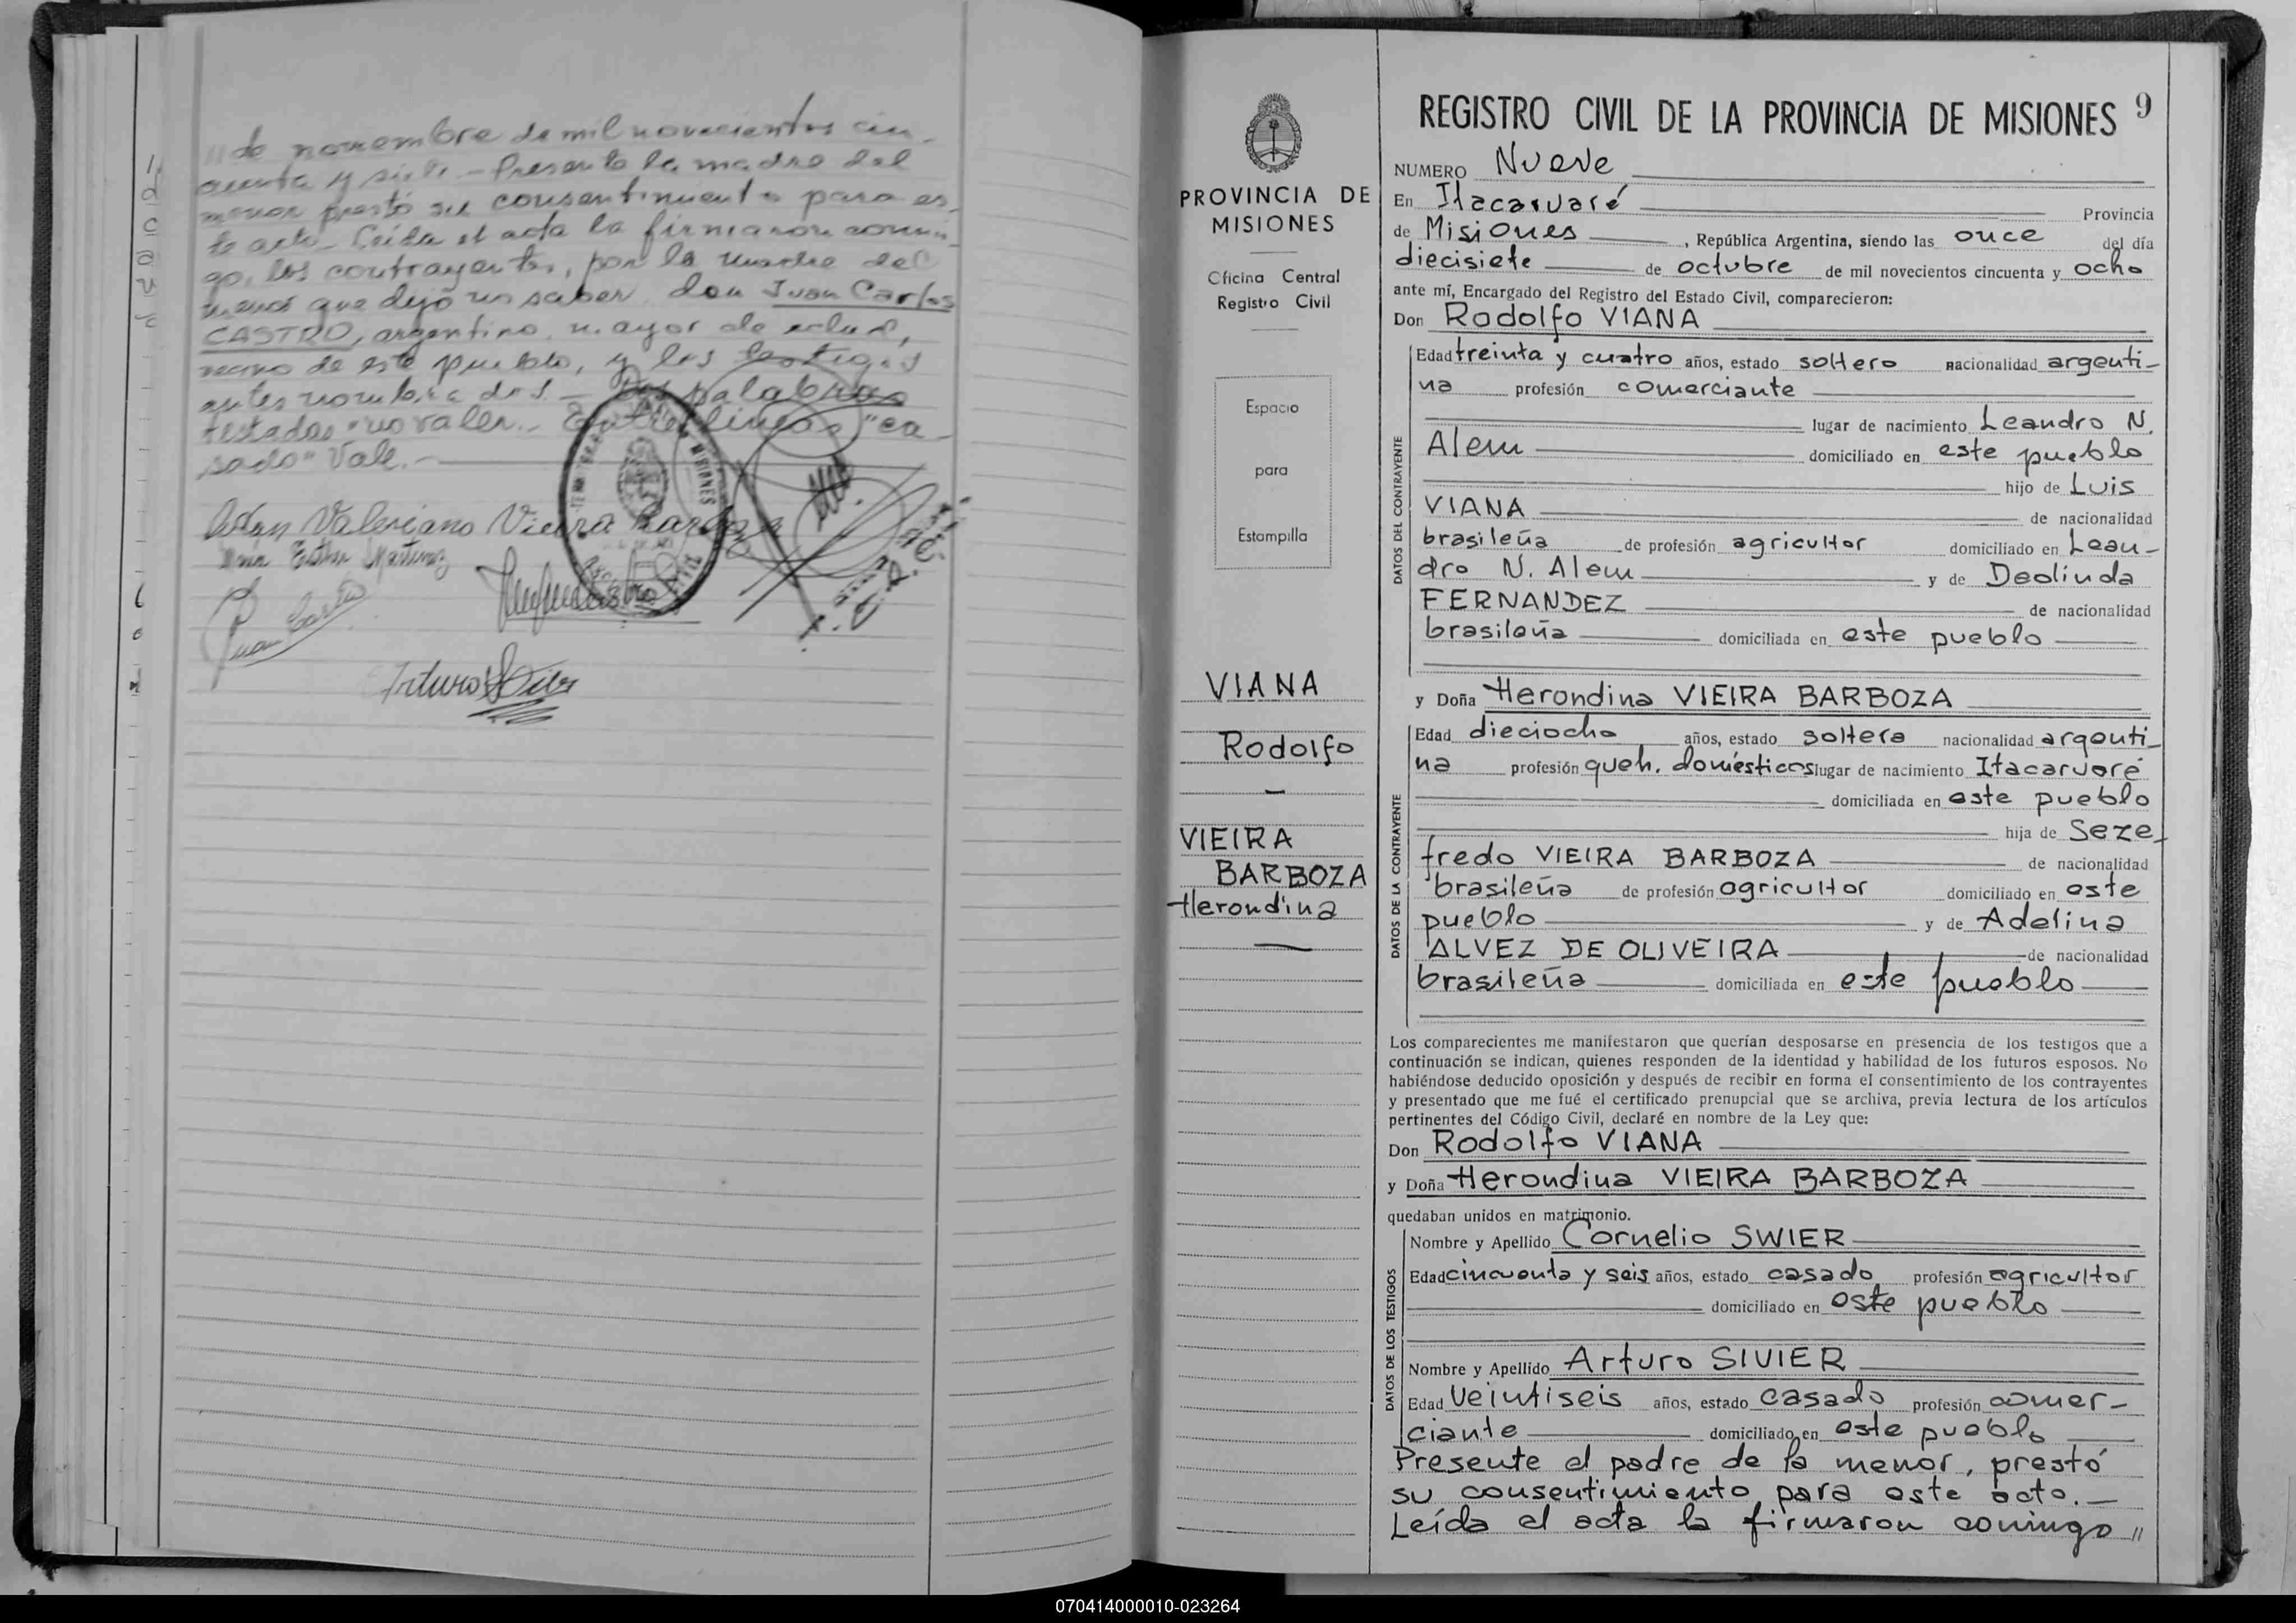 // de noviembre de mil novecientos cin-
cuenta y siete - Presente la madre del
menor prestó su consentimiento para es-
te acto - Leída el acta la firmaron conmi-
go, los contrayentes, por la madre del
menor que dijó no saber, don Juan Carlos
CASTRO, argentino, mayor de edad,
vecino de este pueblo, y los testigos
antes nombrados. - Dos palabras
testadas "no valen. - Entre lineas "ca-
sado" Vale. -
Valeriano Vieira
Maria Esther Martinez
Juan Castro
Arturo
MISIONES
PROVINCIA DE
MISIONES
Oficina Central
Registro Civil
Espacio
para
Estampilla
VIANA
Rodolfo
VIEIRA
BARBOZA
Herondina
REGISTRO CIVIL DE LA PROVINCIA DE MISIONES 9
NUMERO Nueve
En Itacaruaré Provincia
de Misiones , República Argentina, siendo las once del día
diecisiete de octubre de mil novecientos cincuenta y ocho
ante mí, Encargado del Registro del Estado Civil, comparecieron:
Don Rodolfo VIANA
DATOS DEL CONTRAYENTE
Edad treinta y cuatro años, estado soltero nacionalidad argenti-
na profesión comerciante
lugar de nacimiento Leandro N.
Alem domiciliado en este pueblo
hijo de Luis
VIANA de nacionalidad
brasileña de profesión agricultor domiciliado en Lean-
dro N. Alem y de Deolinda
FERNANDEZ de nacionalidad
brasileña domiciliada en este pueblo
y Doña Herondina VIEIRA BARBOZA
DATOS DE LA CONTRAYENTE
Edad dieciocho años, estado soltera nacionalidad argenti-
na profesión queh. domésticos lugar de nacimiento Itacaruaré
domiciliada en este pueblo
hija de Seze-
fredo VIEIRA BARBOZA de nacionalidad
brasileña de profesión agricultor domiciliado en este
pueblo y de Adelina
ALVEZ DE OLIVEIRA de nacionalidad
brasileña domiciliada en este pueblo
Los comparecientes me manifestaron que querían desposarse en presencia de los testigos que a
continuación se indican, quienes responden de la identidad y habilidad de los futuros esposos. No
habiéndose deducido oposición y después de recibir en forma el consentimiento de los contrayentes
y presentado que me fué el certificado prenupcial que se archiva, previa lectura de los artículos
pertinentes del Código Civil, declaré en nombre de la Ley que:
Don Rodolfo VIANA
y Doña Herondina VIEIRA BARBOZA
quedaban unidos en matrimonio.
DATOS DE LOS TESTIGOS
Nombre y Apellido Cornelio SWIER
Edad cincuenta y seis años, estado casado profesión agricultor
domiciliado en este pueblo
Nombre y Apellido Arturo SIVIER
Edad Veintiseis años, estado casado profesión comer-
ciante domiciliado en este pueblo
Presente el padre de la menor, prestó
su consentimiento para este acto. -
Leída el acta la firmaron conmigo //
070414000010-023264